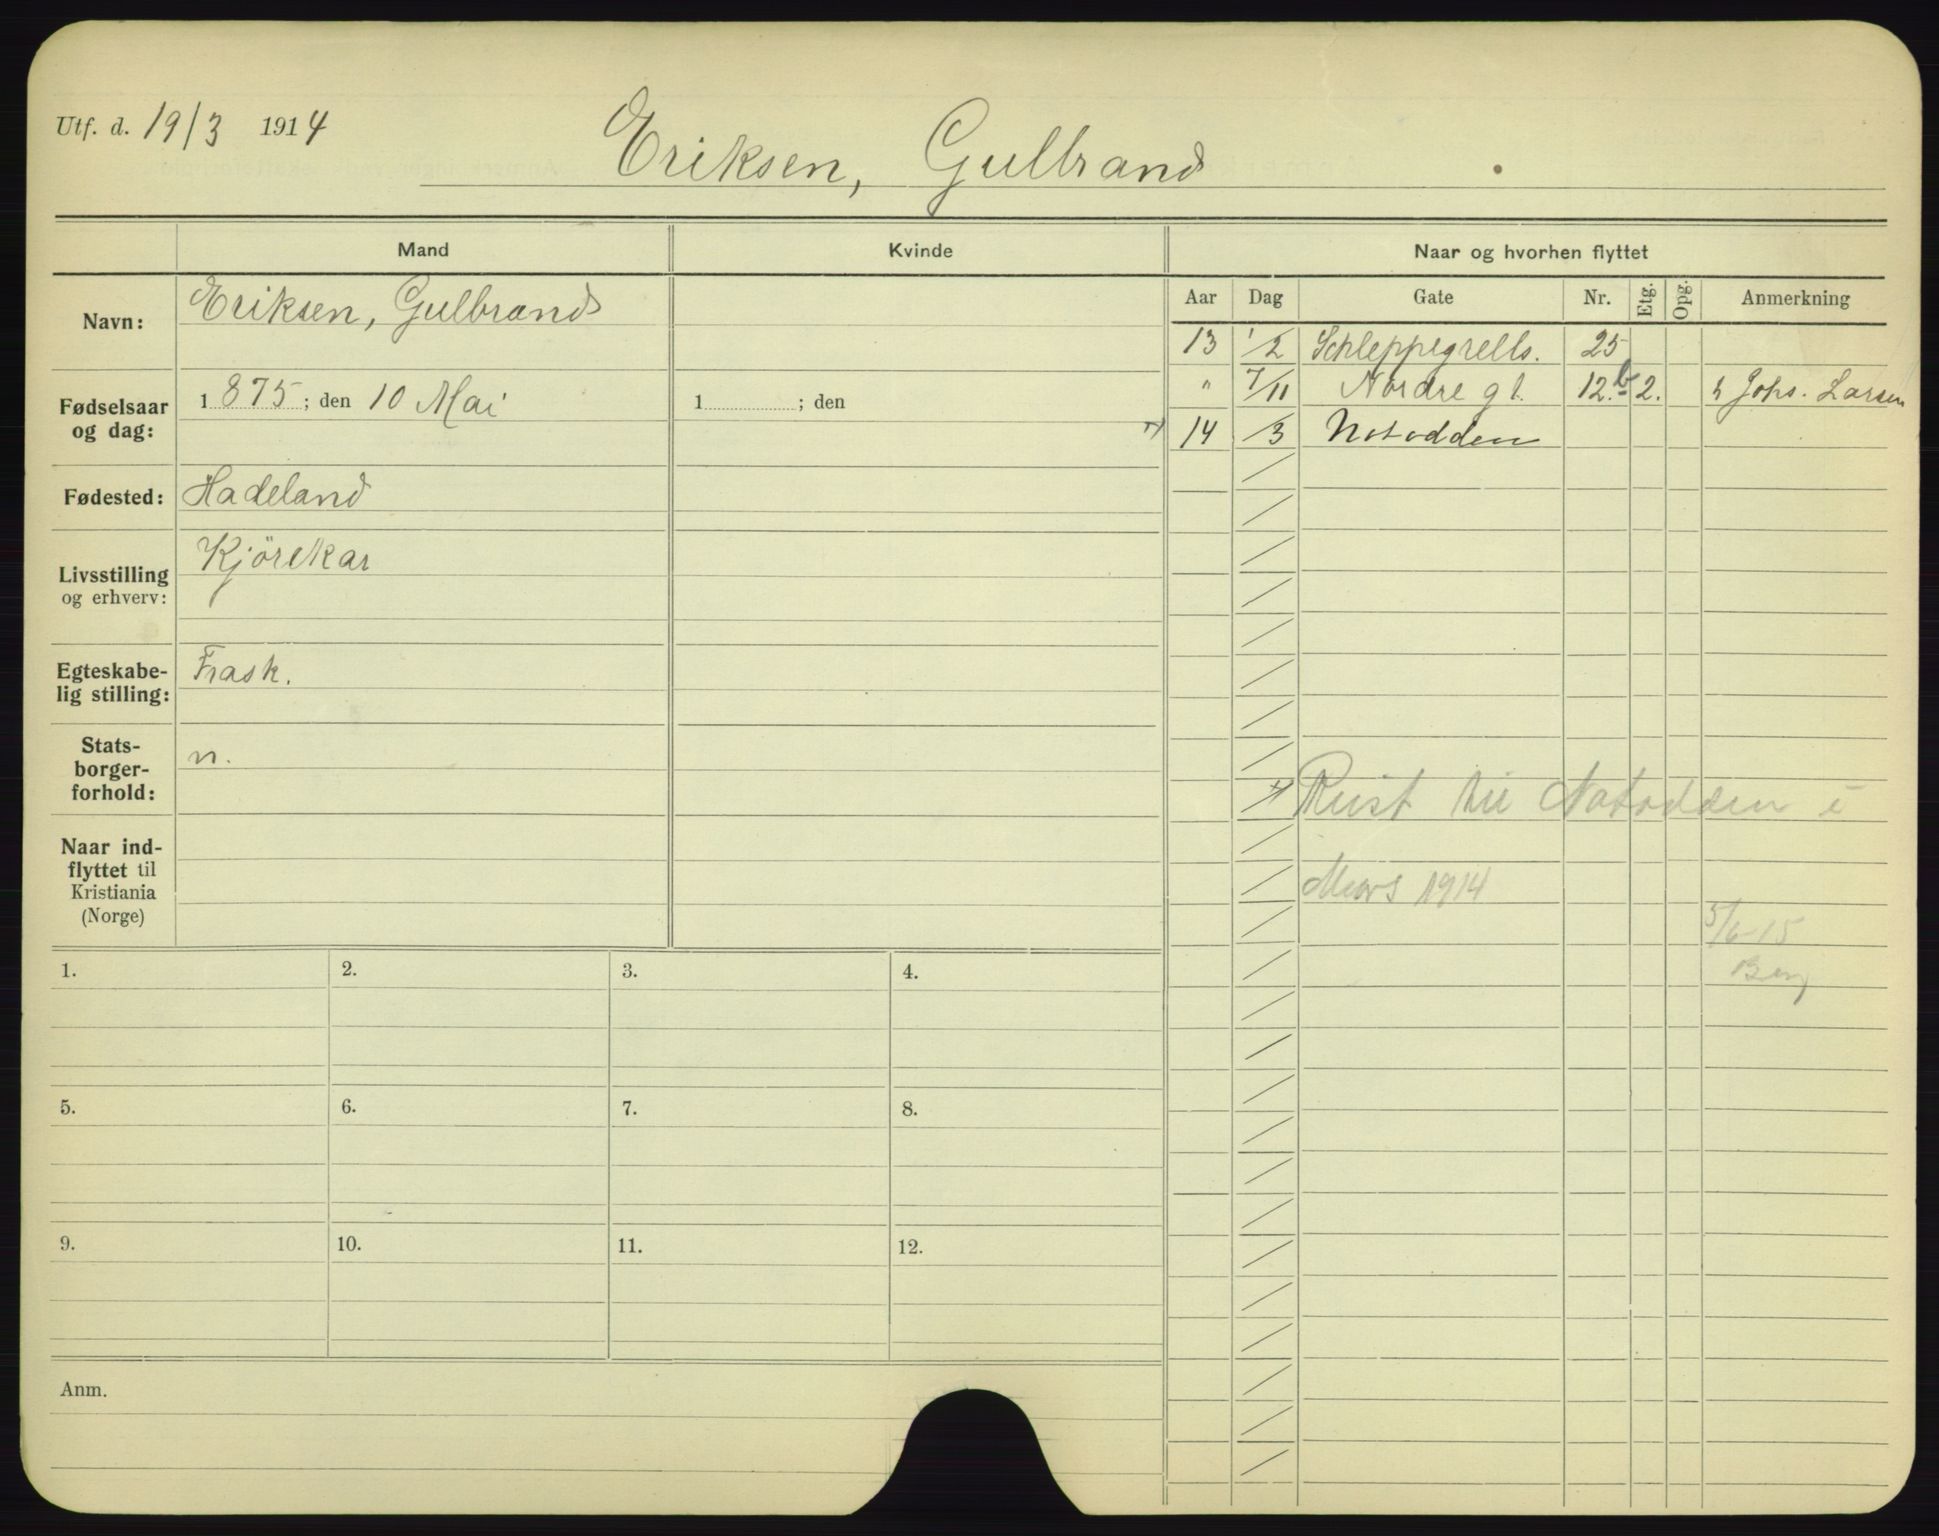 Utf. d. 19/3 1914
Eriksen, Gulbrand
Mand Kvinde Naar og hvorhen flyttet
Navn: Eriksen, Gulbrand
Fødselsaar og dag: 1 875; den 10 Mai 1 ; den
Fødested: Hadeland
Livsstilling og erhverv: Kjörekar
Egteskabelig stilling: Frask.
Statsborgerforhold: n.
Naar indflyttet til Kristiania (Norge)
Aar Dag Gate Nr. Etg. Opg. Anmerkning
13 1/2 Schleppegrells. 25
" 7/11 Nordre gt. 12.b 2. h Johs. Larsen
14 /3 Notodden
Reist til Notodden i
Mars 1914
5/6-15
Berg
1. 2. 3. 4.
5. 6. 7. 8.
9. 10. 11. 12.
Anm.